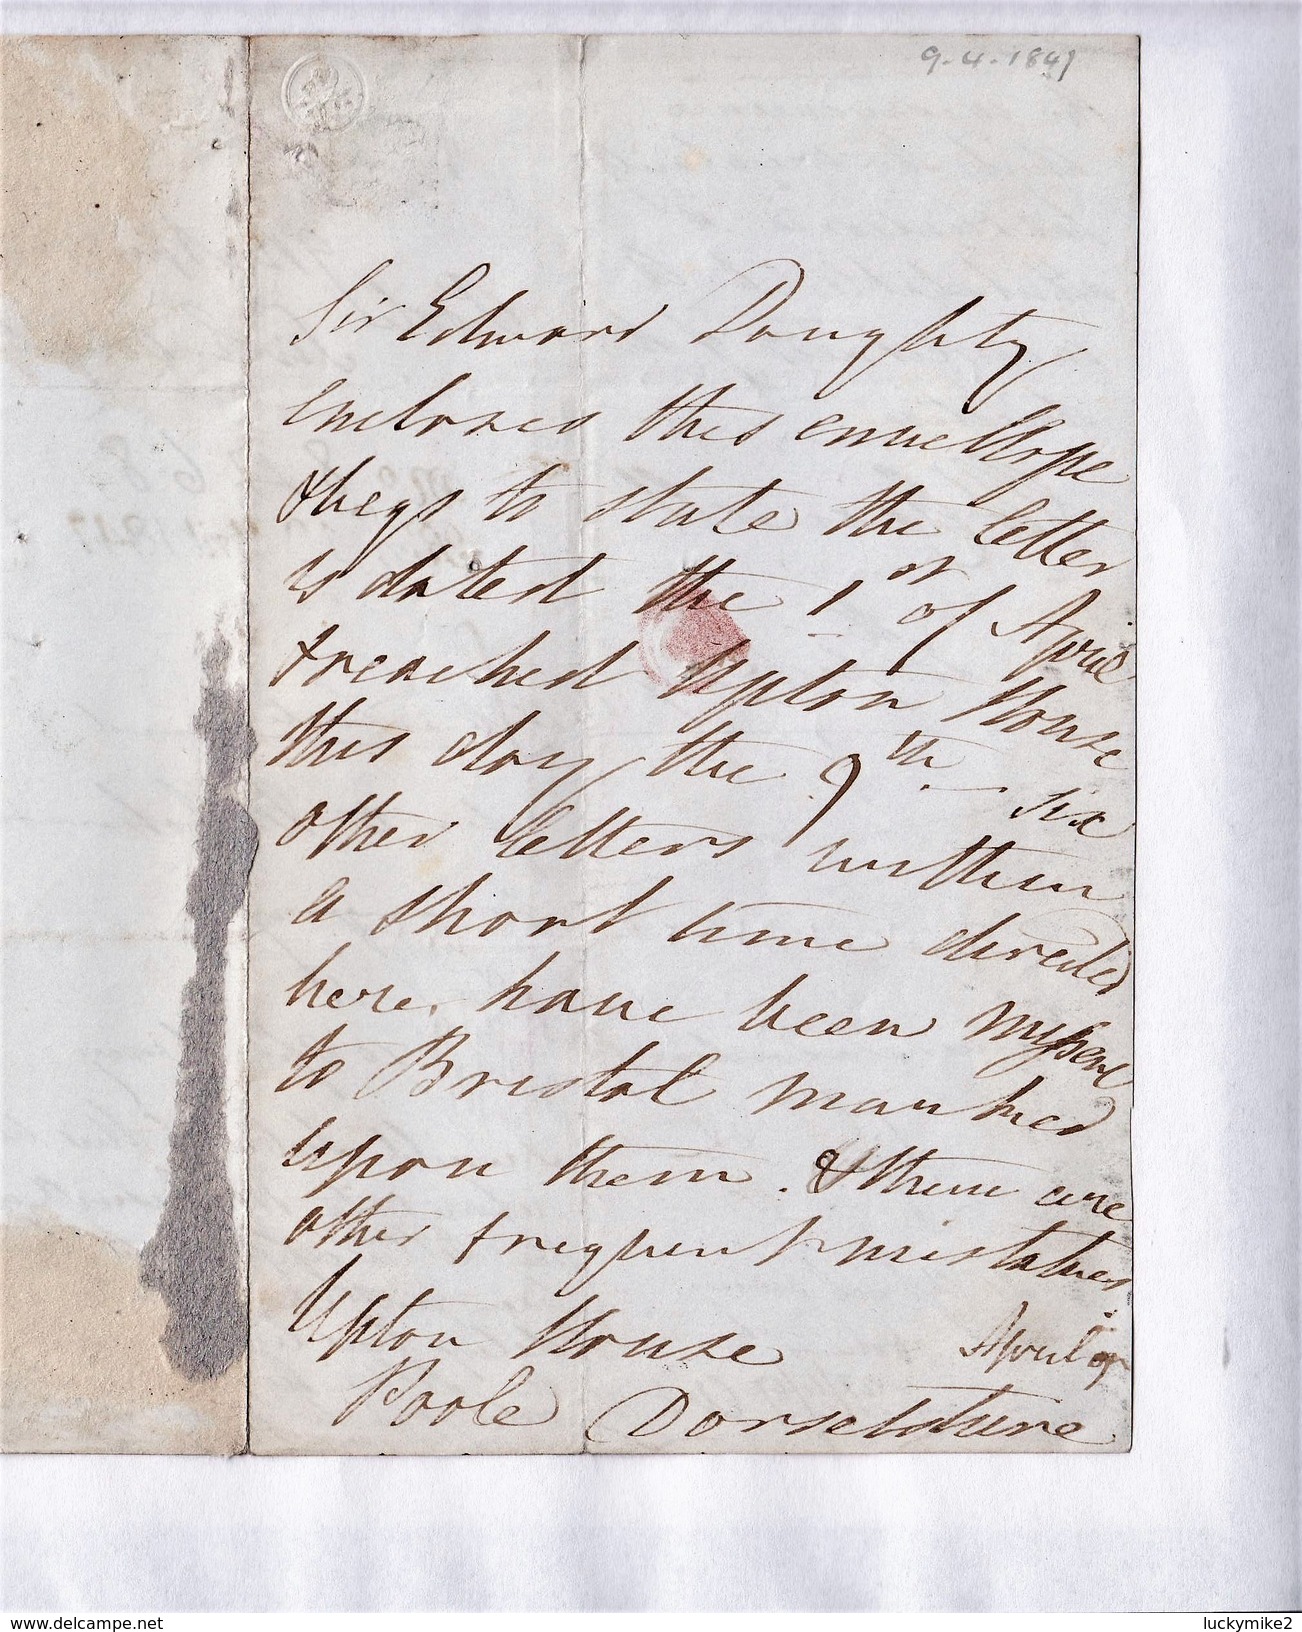 9.4.1849
Sir Edward Doughty
encloses this envellope
& begs to state the letter
is dated the 1st of April
& reached Upton House
this day the 9th. six
other letters within
a short time directed
here, have been missent
to Bristol marked
upon them. & there are
other frequent mistakes
Upton House April 9
Poole Dorsetshire
www.delcampe.net
luckymike2